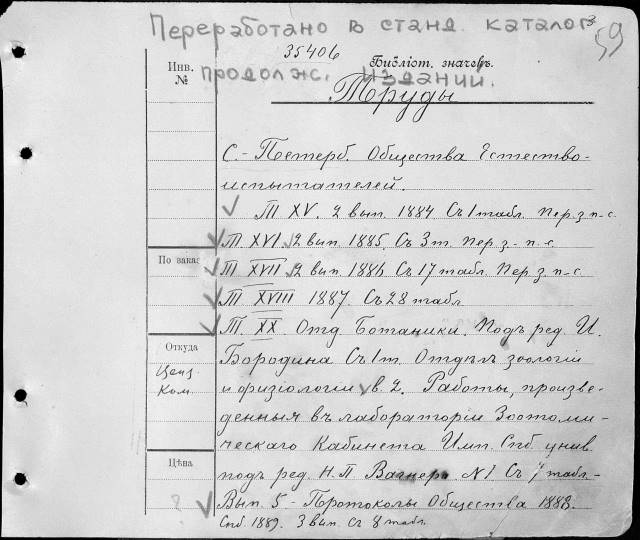 Переработано в станд. каталог
59
35406
Библіот. значекъ.
Инв. №
продолж. изданий.
Труды
С.-Петерб. Общества Естество-
испытателей.
Т. XV. 2 вып. 1884 Съ 1 табл. Пер. з п-с.
Т. XVI. 2 вып. 1885. Съ 3 т. Пер. з-п-с
По заказ
Т XVII 2 вып. 1886 Съ 17 табл. Пер. з п-с
Т XVIII 1887. Съ 28 табл
Т. XX. Отд Ботаники. Подъ ред. И.
Откуда
Бородина Съ 1 т. Отдѣлъ зоологіи
Ценз. Ком.
и физіологіи в. 2. Работы, произве-
денныя въ лабораторіи Зоотоми-
ческаго Кабинета Имп. Спб. унив.
Цѣна
подъ ред. Н. П Вагнера. № 1 Съ 7 табл.-
?
Вып. 5 - Протоколы Общества 1888.
Спб. 1889. 3 вып. съ 8 табл.